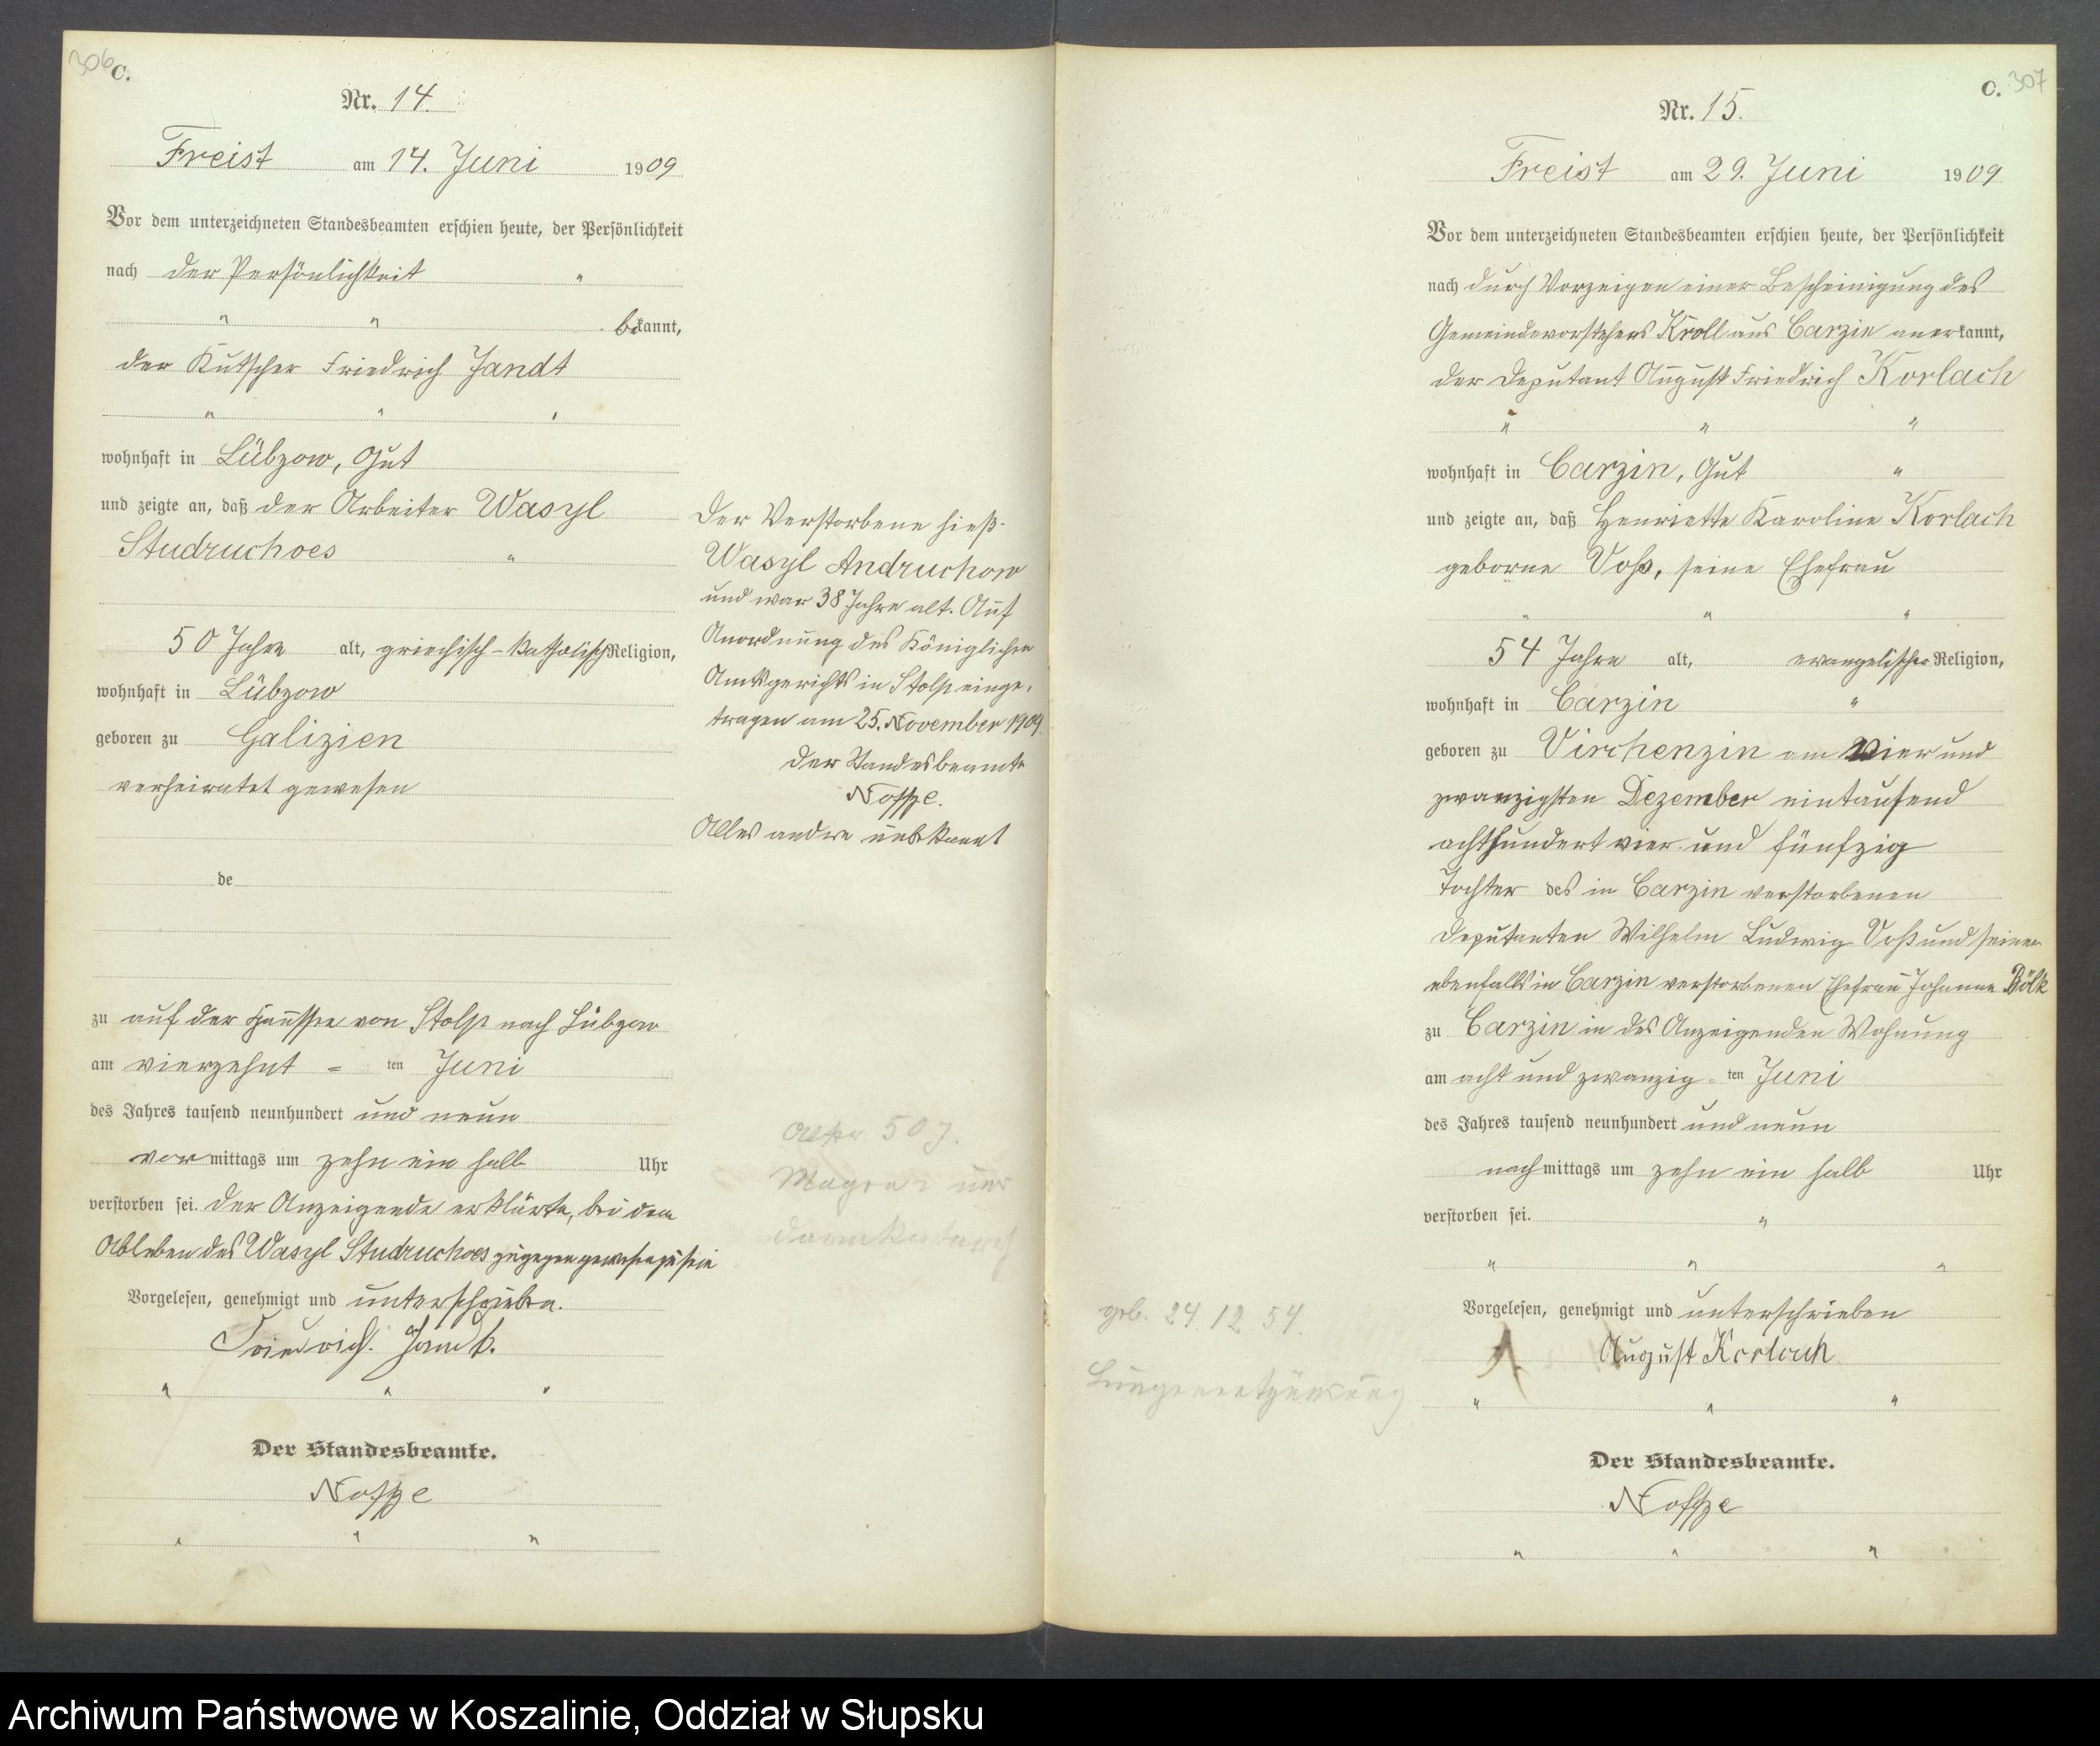 306
C.
Nr. 14.
Freist am 14. Juni 1909
Vor dem unterzeichneten Standesbeamten erschien heute, der Persönlichkeit
nach der Persönlichkeit "
" " bekannt,
der Kutscher Friedrich Jandt
" " "
wohnhaft in Lübzow, Gut
und zeigte an, daß der Arbeiter Wasyl
Studruchoes "
50 Jahre alt, griechisch-katholisch Religion,
wohnhaft in Lübzow
geboren zu Galizien
verheiratet gewesen
de
zu auf der Chaussee von Stolp nach Lübzow
am vierzehnt = ten Juni
des Jahres tausend neunhundert und neun
vormittags um zehn ein halb Uhr
verstorben sei. Der Anzeigende erklärte, bei dem
Ableben des Wasyl Studruchoes zugegen gewesen zu sein
Vorgelesen, genehmigt und unterschrieben.
Friedrich Jandt.
" " "
Der Standesbeamte.
" " "
Der Verstorbene hieß
Wasyl Andruchow
und war 38 Jahre alt. Auf
Anordnung des Königlichen
Amtsgerichts in Stolp einge-
tragen am 25. November 1909.
Der Standesbeamte
Alles andre unbekannt
Alter 50 J.
307
C.
Nr. 15.
Freist am 29. Juni 1909
Vor dem unterzeichneten Standesbeamten erschien heute, der Persönlichkeit
nach durch Vorzeigen einer Bescheinigung des
Gemeindevorstehers Kroll aus Carzin anerkannt,
der Deputant August Friedrich Korlach
" " "
wohnhaft in Carzin, Gut "
und zeigte an, daß Henriette Karoline Korlach
geborne Voß, seine Ehefrau
" " "
54 Jahre alt, evangelischer Religion,
wohnhaft in Carzin "
geboren zu Virchenzin am vier und
zwanzigsten Dezember eintausend
achthundert vier und fünfzig
Tochter des in Carzin verstorbenen
Deputanten Wilhelm Ludwig Voß und seiner
ebenfalls in Carzin verstorbenen Ehefrau Johanna Bölk
zu Carzin in des Anzeigenden Wohnung
am acht und zwanzig = ten Juni
des Jahres tausend neunhundert und neun
nachmittags um zehn ein halb Uhr
verstorben sei. "
" " "
Vorgelesen, genehmigt und unterschrieben
August Korlach
" " "
Der Standesbeamte.
" " "
geb. 24.12.54.
Lungenentzündung
Archiwum Państwowe w Koszalinie, Oddział w Słupsku